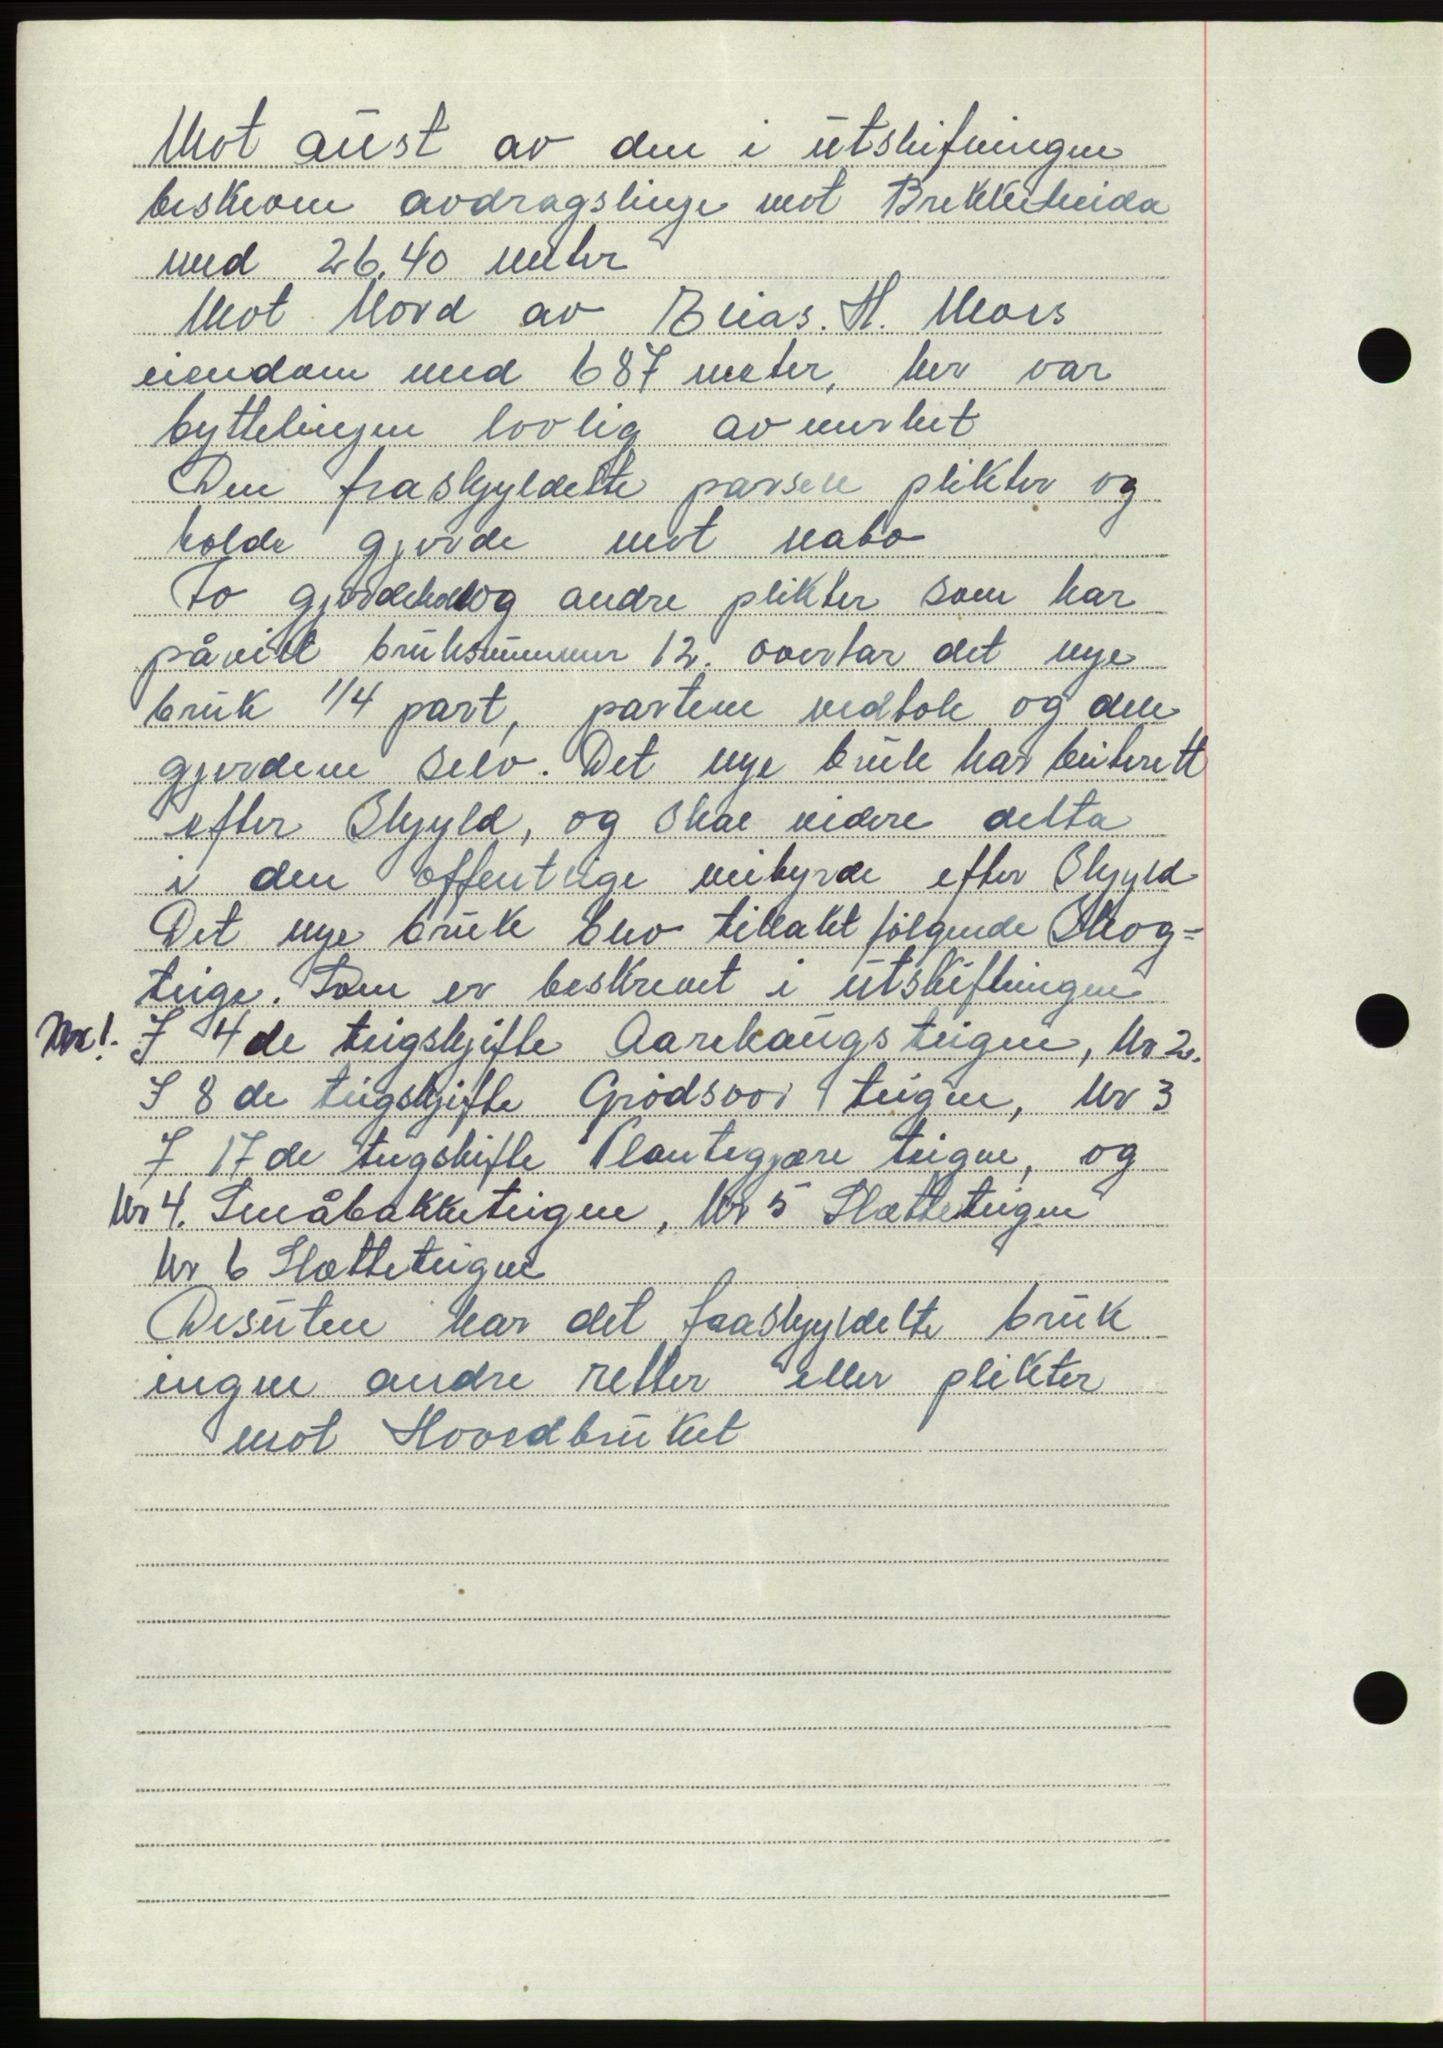 Mot aust av den i utskifningen
beskrevne avdragslinje mot Brekkeheida
med 26.40 meter
Mot Nord av Elias. H. Moes
eiendom med 687 meter, her var
byttelinjen lovlig avmerket
Den fraskyldelte parsell plikter og
holde gjerde mot nabo
To gjerdehold og andre plikter som har
påvilt bruksnummer 12. overtar det nye
bruk 1/4 part, partene vedtok og dele
gjerdene selv. Det nye bruk har beiterett
efter Skyld, og skal videre delta
i den offentlige veibyrde efter Skyld
Det nye bruk blev tillakt følgende Skog-
teige. Som er beskrevet i utskiftningen
Nr 1. I 4de teigskjifte Aarehaugsteigen, Nr 2.
I 8de teigskjifte teigen, Nr 3
I 17de teigskifte Plantegjære teigen, og
Nr 4. Småbakketeigen, Nr 5 Slætteteigen
Nr 6 Slætteteigen
Desuten har det fraskyldelte bruk
ingen andre retter eller plikter
mot Hovedbruket